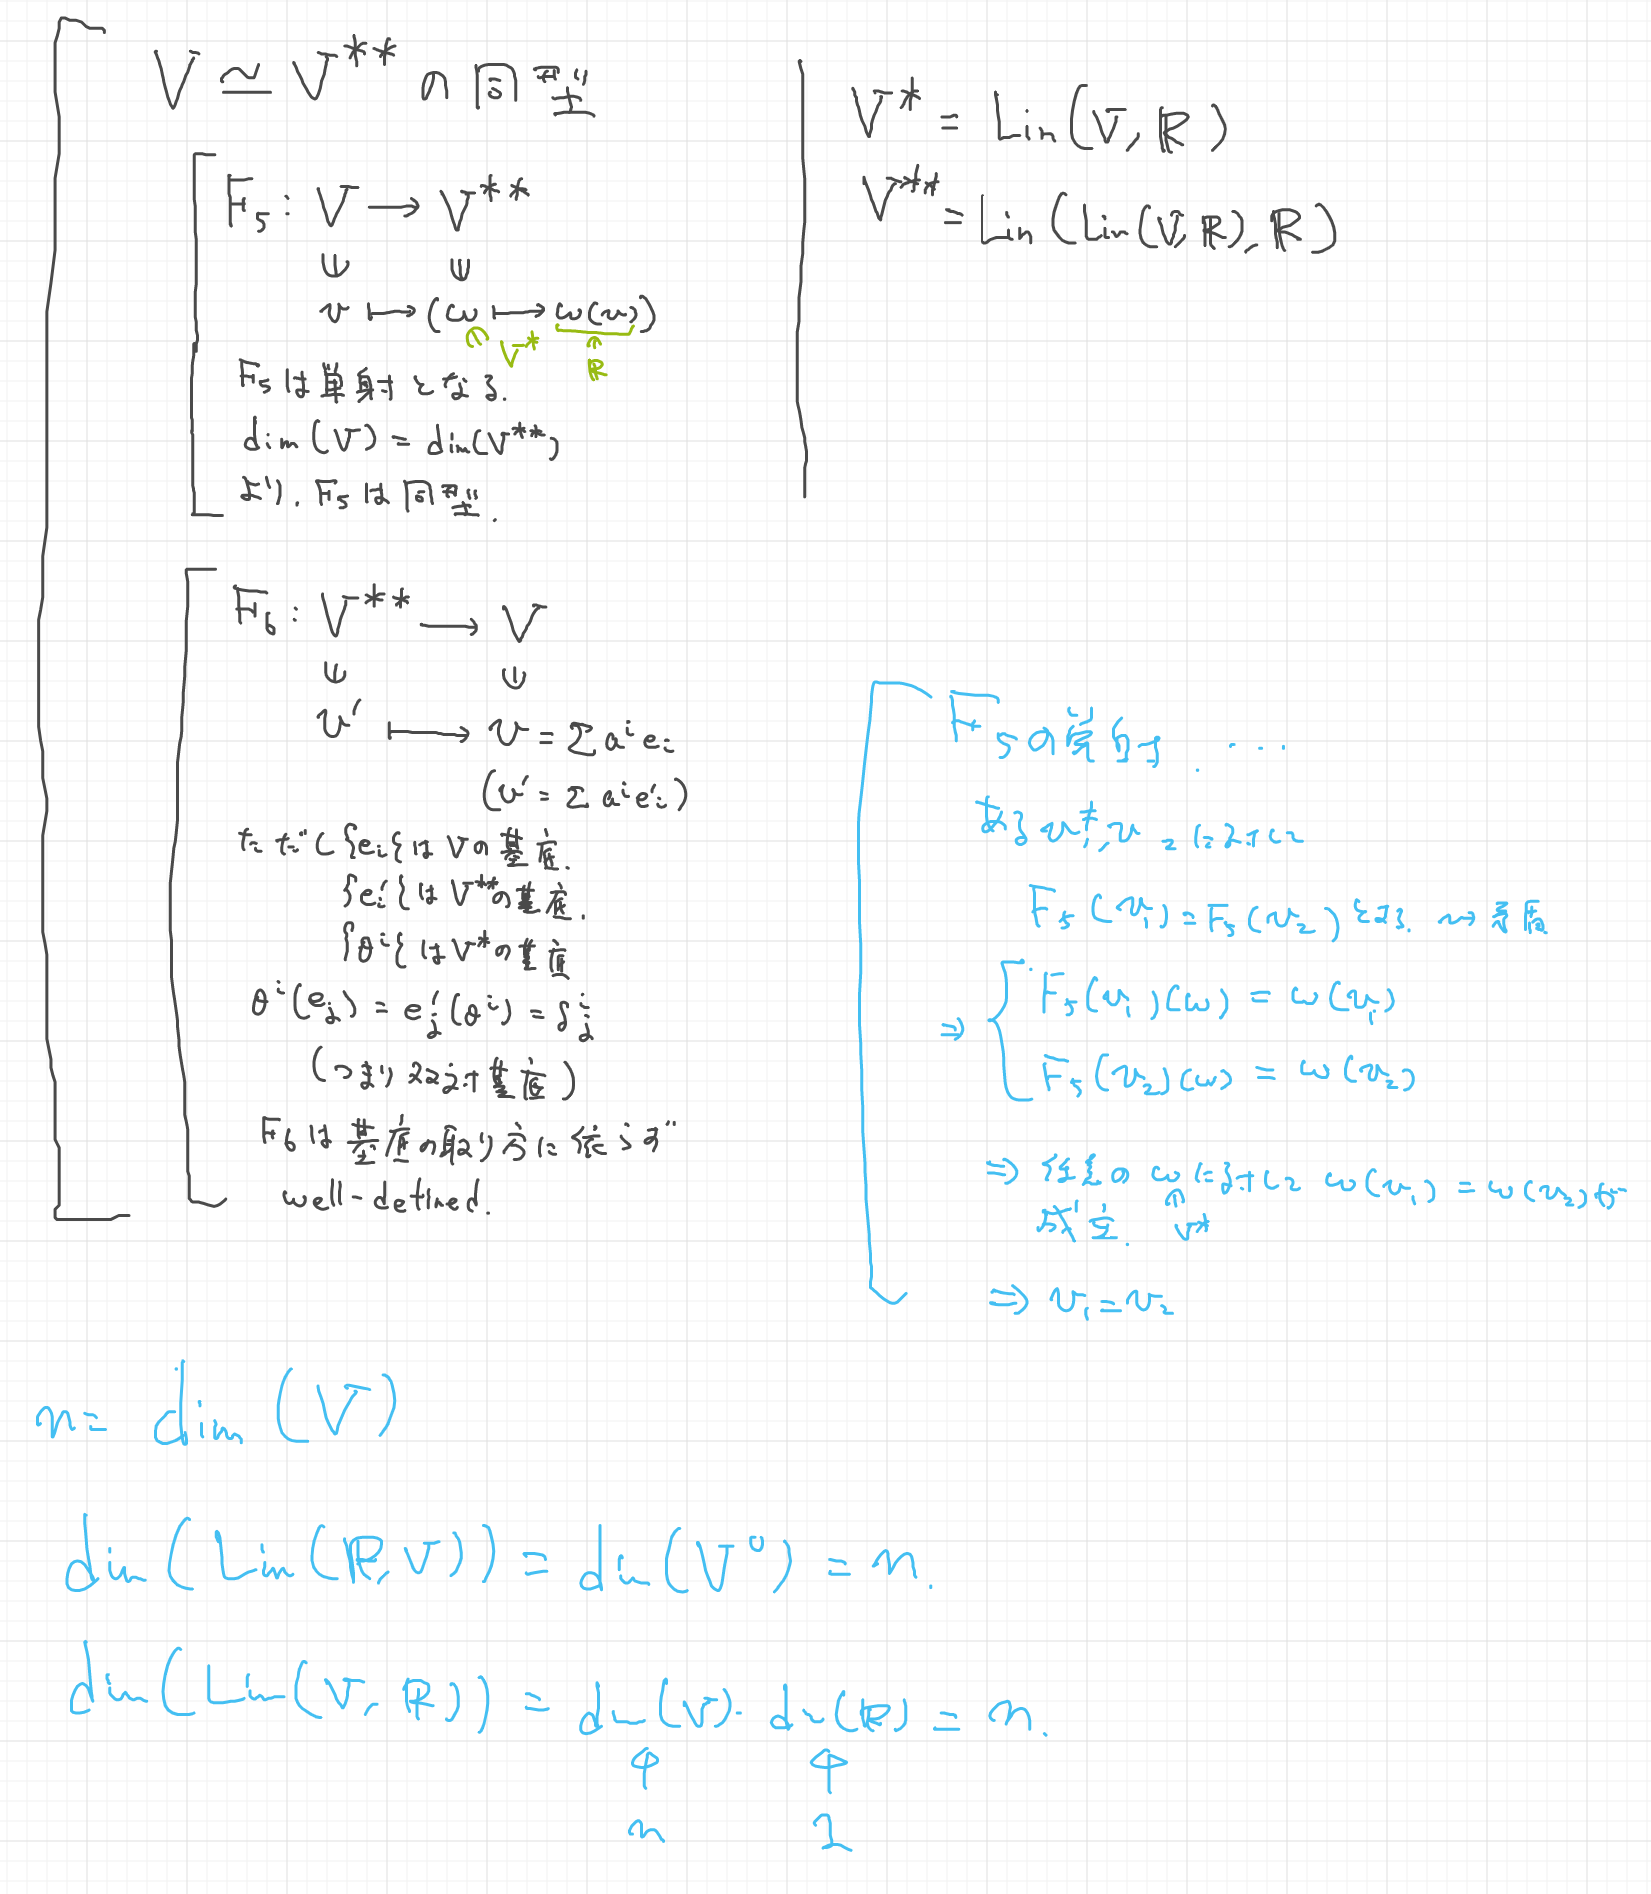 V ≃ V** の同型
F₅: V → V**
v ↦ (ω ↦ ω(v))
V*
ℝ
F₅は単射となる.
dim(V) = dim(V**)
より, F₅は同型.
F₆: V** → V
v′ ↦ v = Σ aⁱ eᵢ
(v′ = Σ aⁱ e′ᵢ)
ただし {eᵢ} は Vの基底.
{e′ᵢ} は V**の基底.
{θⁱ} は V*の基底
θⁱ(eⱼ) = e′ⱼ(θⁱ) = δⁱⱼ
(つまり双対基底)
F₆は基底の取り方に依らず
well-defined.
V* = Lin(V, ℝ)
V** = Lin(Lin(V, ℝ), ℝ)
F₅の単射. ...
ある v₁ ≠ v₂ に対して
F₅(v₁) = F₅(v₂) とする. ⇝ 矛盾
⇒ { F₅(v₁)(ω) = ω(v₁)
F₅(v₂)(ω) = ω(v₂)
⇒ 任意の ω に対して ω(v₁) = ω(v₂) が
成立. V*
⇒ v₁ = v₂
n = dim(V)
dim(Lin(ℝ, V)) = dim(V⁰) = n.
dim(Lin(V, ℝ)) = dim(V)・dim(ℝ) = n.
n 1